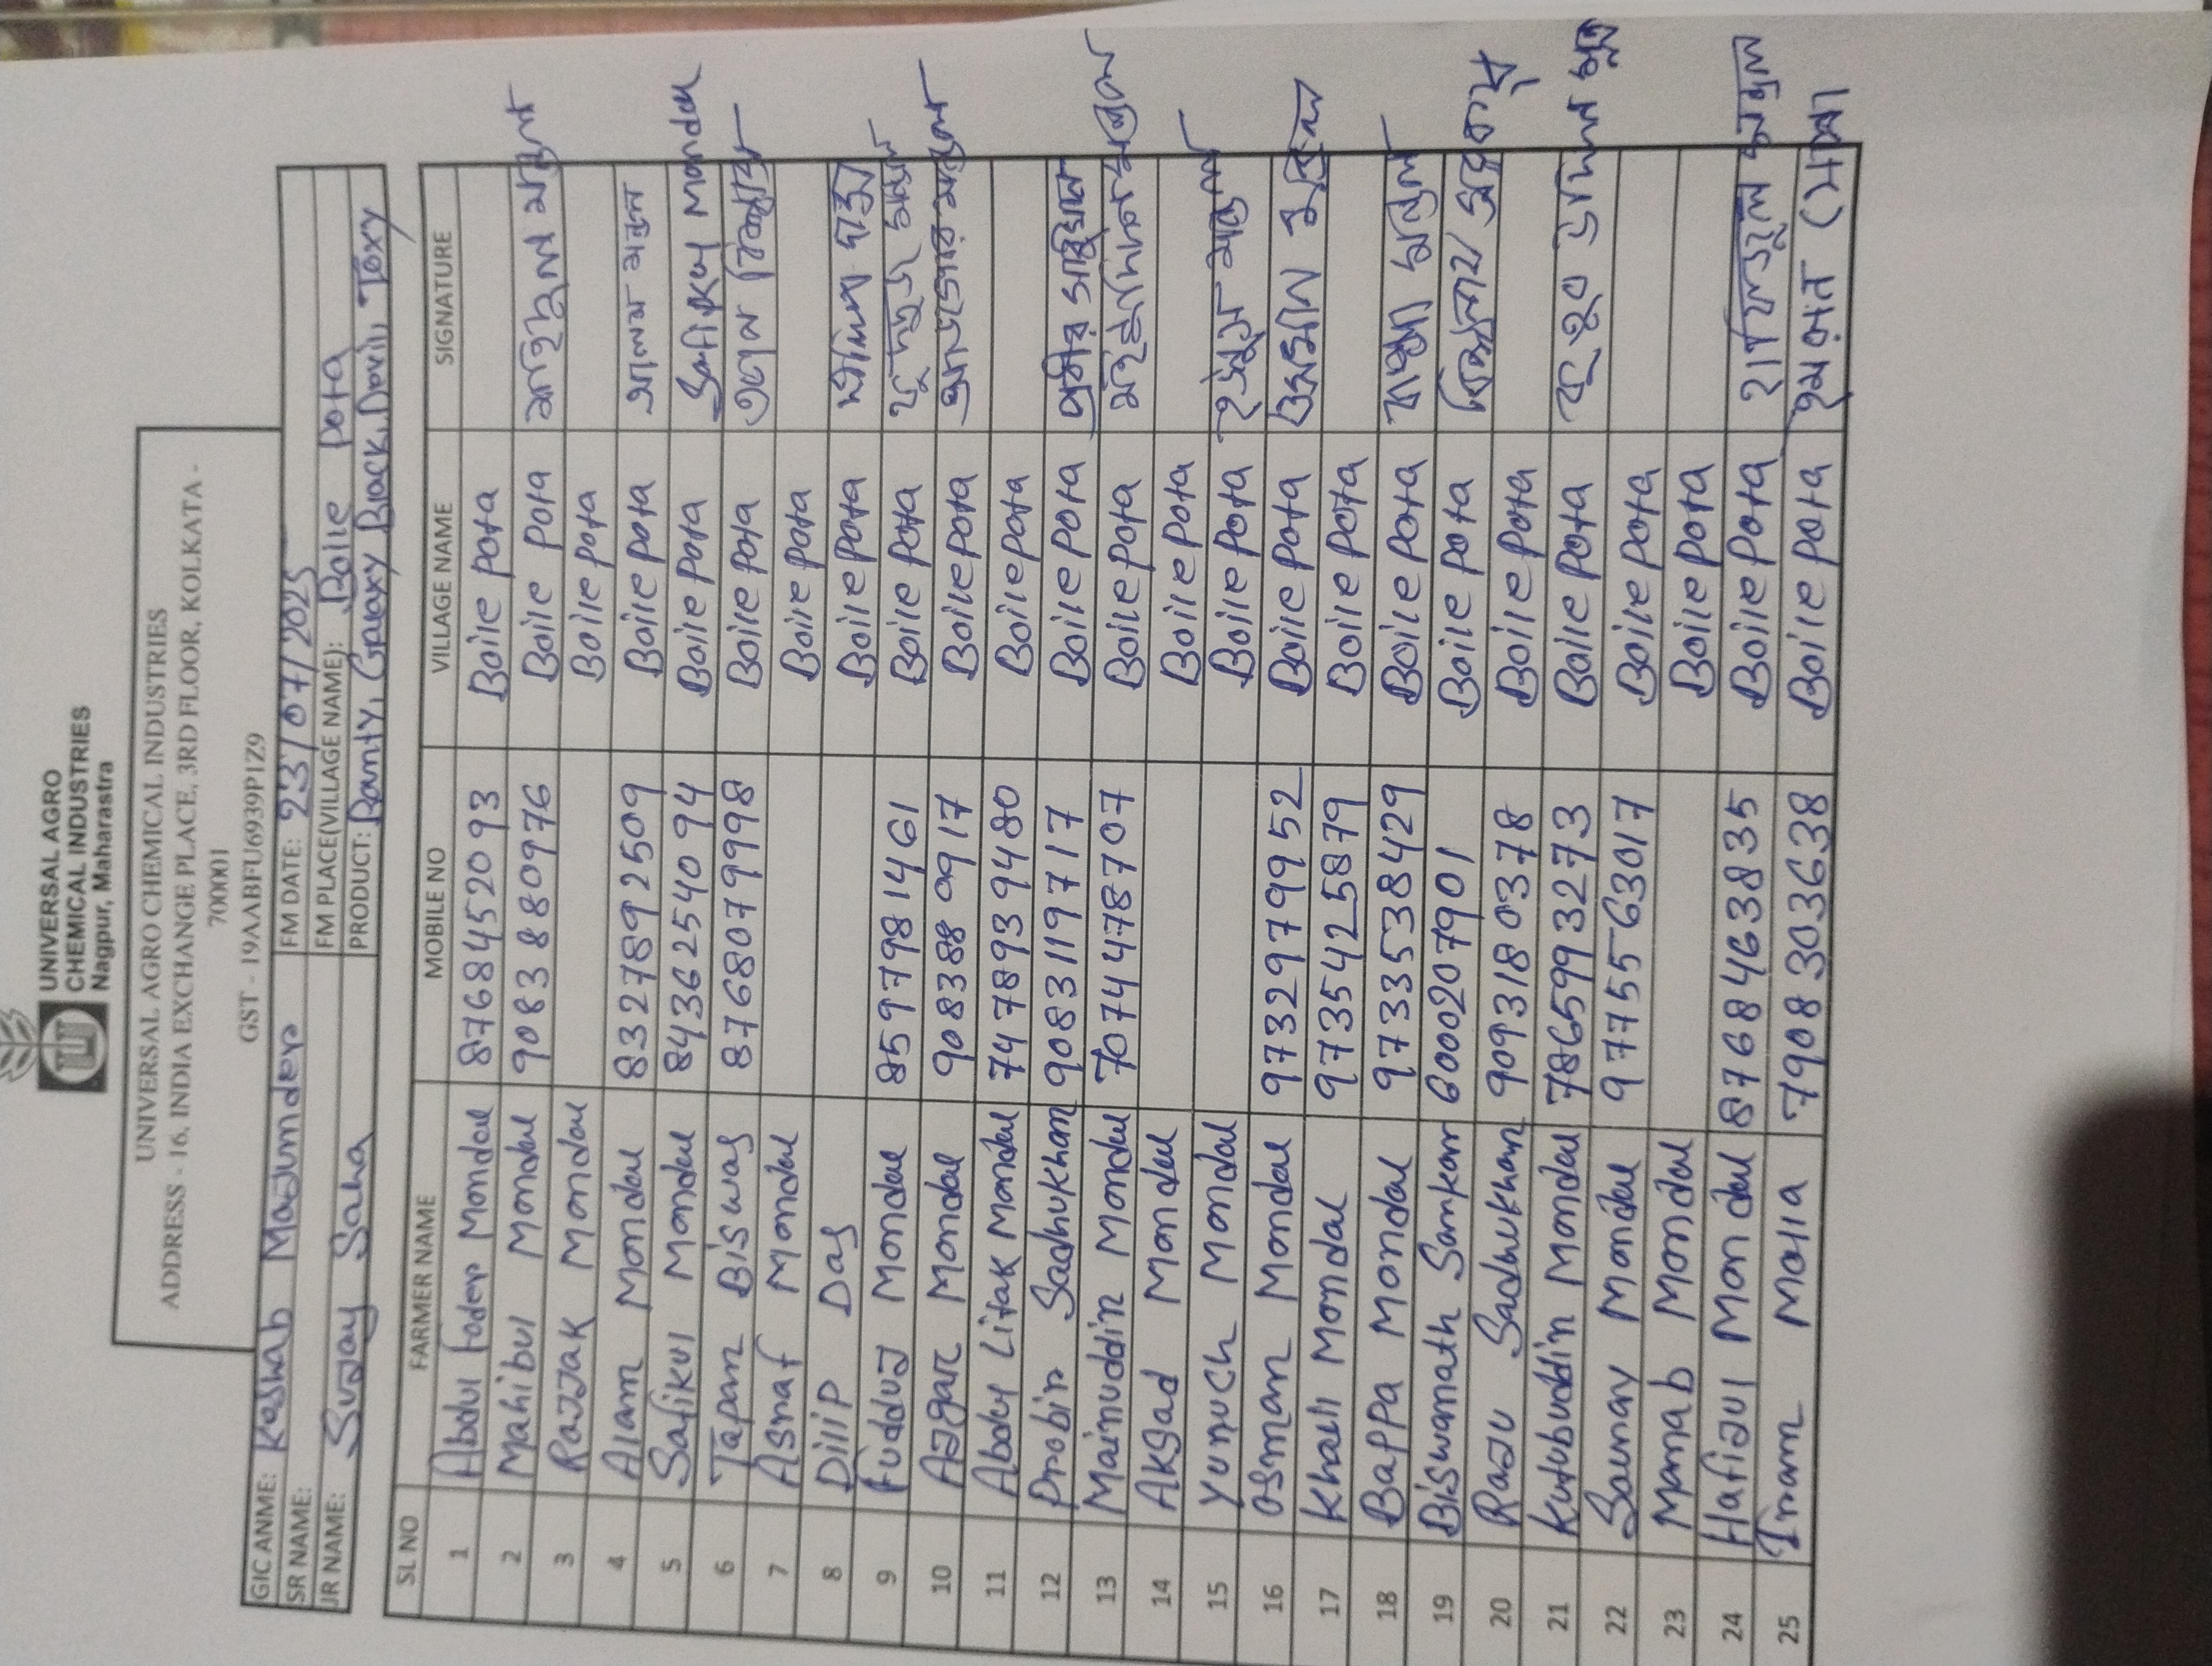 UNIVERSAL AGRO
CHEMICAL INDUSTRIES
Nagpur, Maharastra
UNIVERSAL AGRO CHEMICAL INDUSTRIES
ADDRESS - 16, INDIA EXCHANGE PLACE, 3RD FLOOR, KOLKATA -
700001
GST - 19AABFU6939P1Z9
GIC ANME: Keshab Mazumder FM DATE: 23/07/2025
SR NAME: FM PLACE(VILLAGE NAME): Boile Pota
JR NAME: Sujay Saha PRODUCT: Banty, Galaxy Black, Devil, Toxy
SL NO FARMER NAME MOBILE NO VILLAGE NAME SIGNATURE
1 Abdul Mondal 8768452093 Boile Pota
2 Mahibul Mondal 9083880976 Boile Pota
3 Rajjak Mondal Boile Pota
4 Alam Mondal 8327892509 Boile Pota আলম মন্ডল
5 Safikul Mondal 8436254094 Boile Pota Safikul Mondal
6 Tapan Biswas 8768079998 Boile Pota তপন বিশ্বাস
7 Asraf Mondal Boile Pota
8 Dilip Das Boile Pota
9 Mondal 8597981461 Boile Pota
10 Azgar Mondal 9083880917 Boile Pota
11 Abdul Litak Mondal 7478939480 Boile Pota
12 Probir Sadhukhan 9083119717 Boile Pota
13 Mainuddin Mondal 7074478707 Boile Pota
14 Aksad Mondal Boile Pota
15 Yunuch Mondal Boile Pota
16 Osman Mondal 9732979952 Boile Pota
17 Khalil Mondal 9735425879 Boile Pota
18 Bappa Mondal 9733538429 Boile Pota বাপ্পা মন্ডল
19 Biswanath Sarkar 6000207901 Boile Pota
20 Raju Sadhukhan 9093180378 Boile Pota
21 Kutubuddin Mondal 7865993273 Boile Pota
22 Mondal 9775563017 Boile Pota
23 Manab Mondal Boile Pota
24 Hafizul Mondal 8768463835 Boile Pota
25 Imam Molla 7908303638 Boile Pota